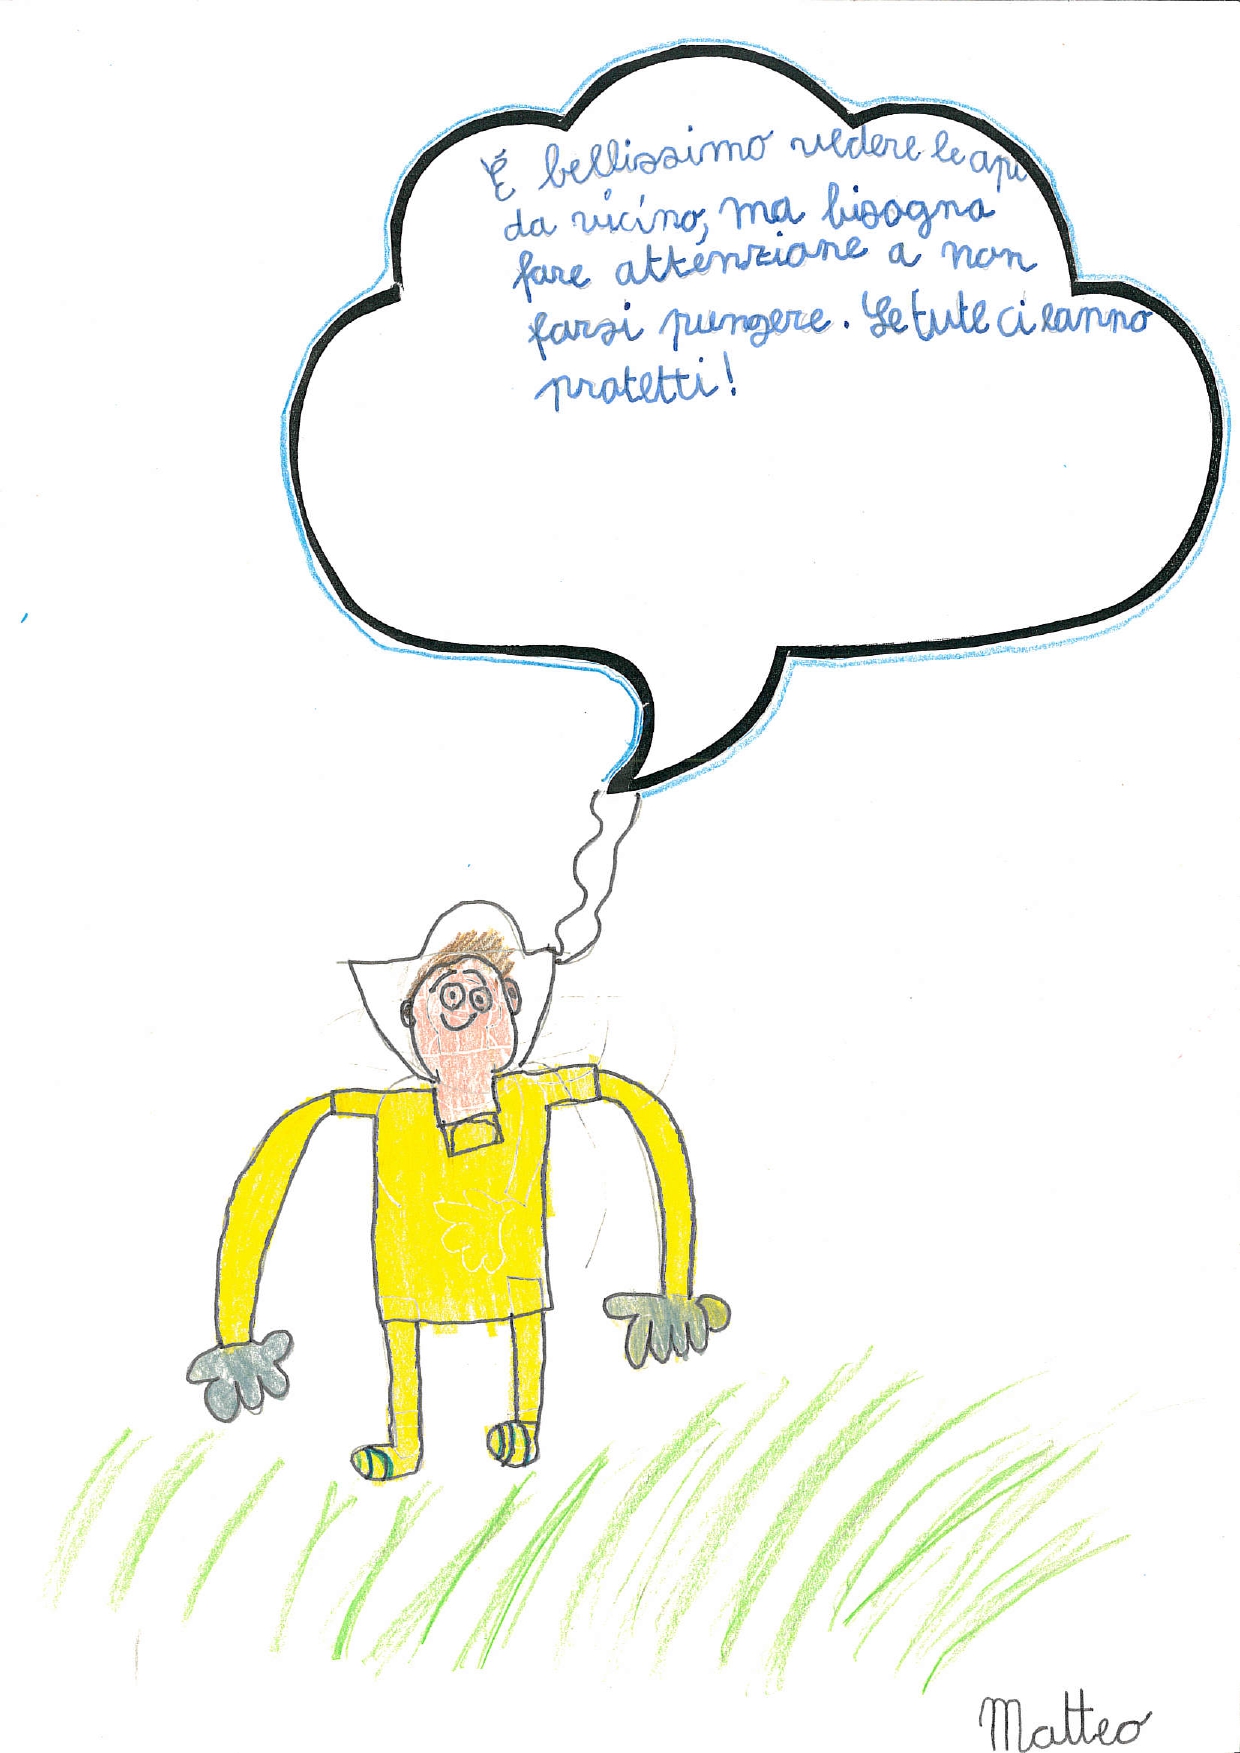 É bellissimo vedere le api
da vicino, ma bisogna
fare attenzione a non
farsi pungere. Le tute ci eanno
protetti!
Matteo